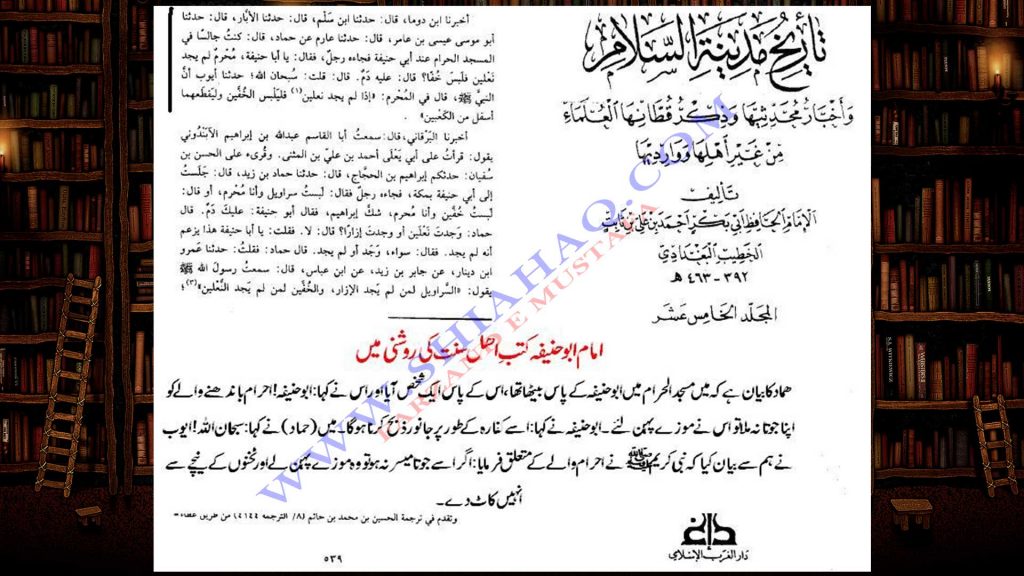 تأريخ مدينة السلام
وأخبار محدثيها وذكر قطانها العلماء
من غير أهلها ووارديها
تأليف
الإمام الحافظ أبي بكر أحمد بن علي بن ثابت
الخطيب البغدادي
٣٩٢ - ٤٦٣ هـ
المجلد الخامس عشر
أخبرنا ابن دوما، قال: حدثنا ابن سَلْم، قال: حدثنا الأبَّار، قال: حدثنا
أبو موسى عيسى بن عامر، قال: حدثنا عارم عن حماد، قال: كنتُ جالسًا في
المسجد الحرام عند أبي حنيفة فجاءه رجلٌ، فقال: يا أبا حنيفة، مُحْرمٌ لم يجد
نَعْلين فلَبسَ خُفًّا؟ قال: عليه دَمٌ. قال: قلت: سُبحان الله؛ حدثنا أيوب أنَّ
النبيَّ ﷺ، قال في المُحْرم: «إذا لم يجد نعلين(١) فليَلْبس الخُفَّين وليَقْطعهما
أسفل من الكَعْبين»
أخبرنا البَرْقاني، قال: سمعتُ أبا القاسم عبدالله بن إبراهيم الآبَنْدُوني
يقول: قرأتُ على أبي يَعْلَى أحمد بن عليّ بن المثنى. وقُرىء على الحسن بن
سُفيان: حدثكم إبراهيم بن الحجَّاج، قال: حدثنا حماد بن زيد، قال: جَلَستُ
إلى أبي حنيفة بمكة، فجاءه رجلٌ فقال: لَبستُ سراويل وأنا مُحْرم، أو قال:
لَبستُ خُفَّين وأنا مُحرم، شكَّ إبراهيم، فقال أبو حنيفة: عليكَ دَمٌ. قال
حماد: وَجدتَ نَعْلَين أو وجدتَ إزارًا؟ قال: لا. فقلت: يا أبا حنيفة هذا يزعم
أنه لم يجد. فقال: سواء، وَجَد أو لم يجد. قال حماد: فقلتُ: حدثنا عَمرو
ابن دينار، عن جابر بن زيد، عن ابن عباس، قال: سمعتُ رسولَ الله ﷺ
يقول: «السَّراويل لمن لم يَجد الإزار، والخُفَّين لمن لم يَجد النَّعْلين»(٣)؛
امام ابو حنیفہ کتب اھل سنت کی روشنی میں
حماد کا بیان ہے کہ میں مسجد الحرام میں ابو حنیفہ کے پاس بیٹھا تھا، اس کے پاس ایک شخص آیا اور اس نے کہا: ابو حنیفہ! احرام باندھنے والے کو
اپنا جوتا نہ ملا تو اس نے موزے پہن لئے۔ ابو حنیفہ نے کہا: اسے کفارہ کے طور پر جانور ذبح کرنا ہوگا۔ میں (حماد) نے کہا: سبحان اللہ! ایوب
نے ہم سے بیان کیا کہ نبی کریم ﷺ نے احرام والے کے متعلق فرمایا: اگر اسے جوتا میسر نہ ہو تو وہ موزے پہن لے اور ٹخنوں کے نیچے سے
انہیں کاٹ دے۔
وتقدم في ترجمة الحسين بن محمد بن حاتم (٨/ الترجمة ٤١٤٤) من طريق عطاء-
٥٣٩
دار الغرب الإسلامي
WWW.SHIAHAQ.COM
FARZAND E MUSTAFA